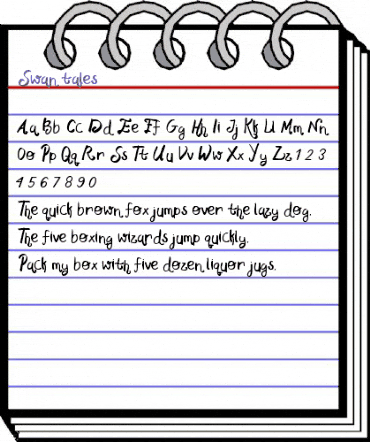 Swan tales
Aa Bb Cc Dd Ee Ff Gg Hh Ii Jj Kk Ll Mm Nn
Oo Pp Qq Rr Ss Tt Uu Vv Ww Xx Yy Zz 1 2 3
4 5 6 7 8 9 0
The quick brown fox jumps over the lazy dog.
The five boxing wizards jump quickly.
Pack my box with five dozen liquor jugs.